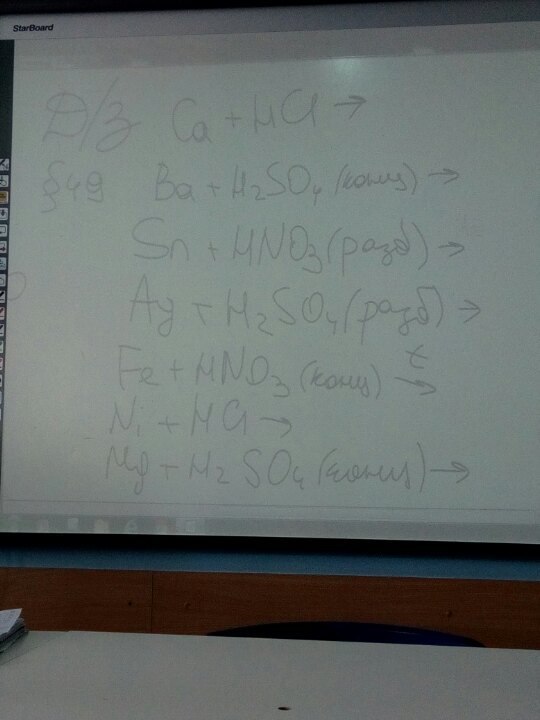 StarBoard
Д/з Ca + HCl →
§49 Ba + H₂SO₄ (конц) →
Sn + HNO₃ (разб) →
Ag + H₂SO₄ (разб) →
Fe + HNO₃ (конц) t →
Ni + HCl →
Mg + H₂SO₄ (конц) →